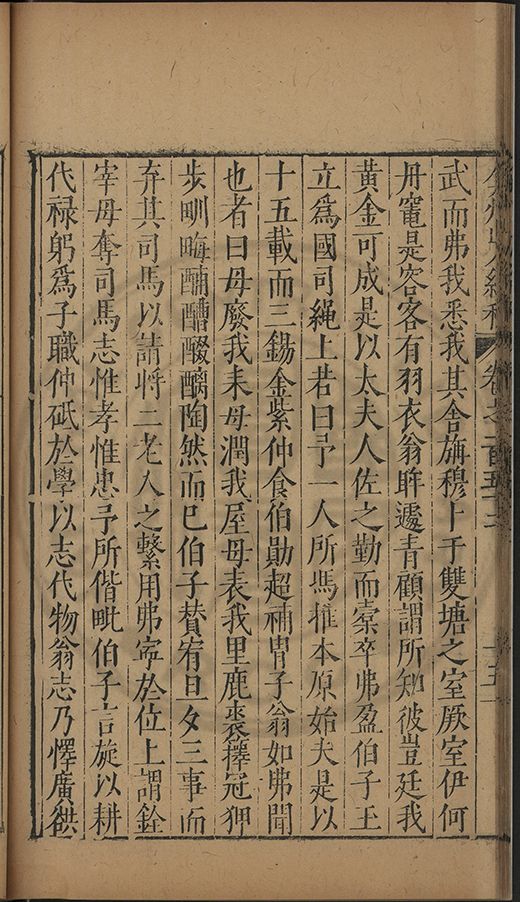 卷之一百五十
武而弗我悉我其舍旃穆卜于雙塘之室厥室伊何
丹竈是容客有羽衣翁眸遽青顧謂所知彼豈廷我
黃金可成是以太夫人佐之勤而橐卒弗盈伯子王
立爲國司繩上若曰予一人所馮推本原始夫是以
十五載而三錫金紫仲食伯勛超補胄子翁如弗聞
也者曰毋廢我耒毋潤我屋毋表我里鹿裘籜冠狎
步甽畮酺醩醊醨陶然而已伯子贊宥旦夕三事而
弃其司馬以請將二老人之繫用弗寧於位上謂銓
宰毋奪司馬志惟孝惟忠予所偕毗伯子言旋以耕
代祿躬爲子職仲砥於學以志代物翁志乃懌廣